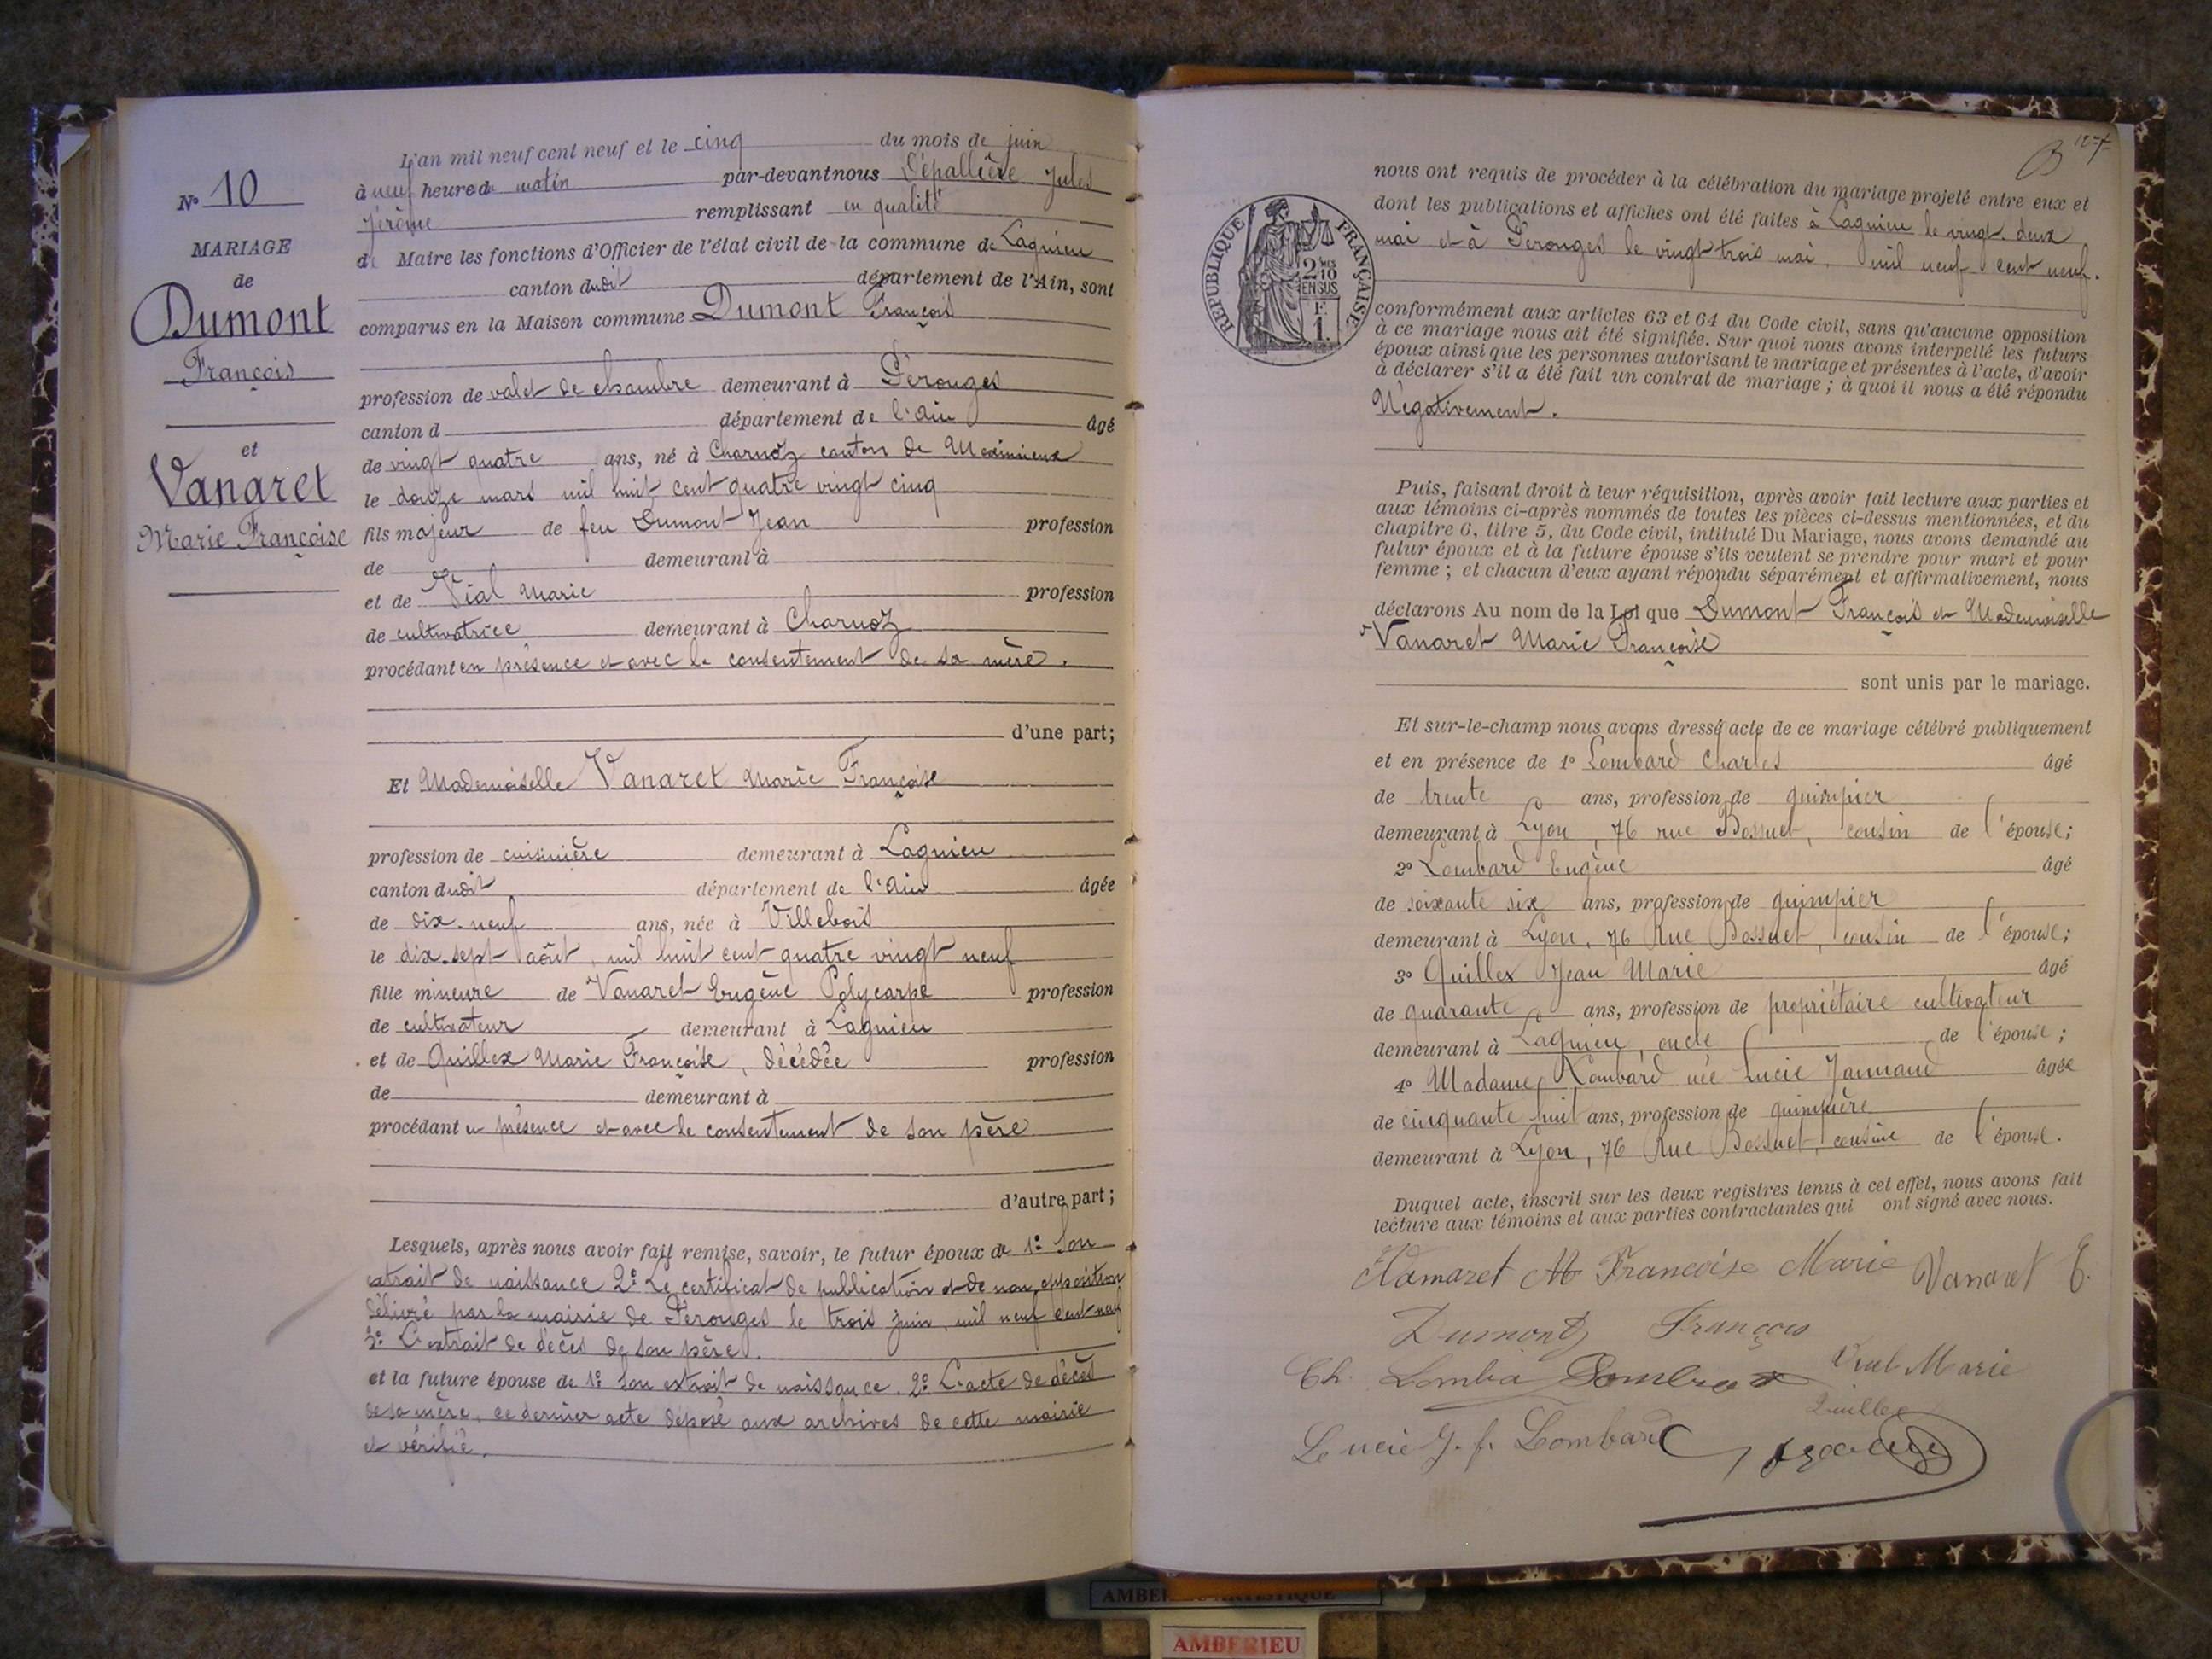 N° 10
MARIAGE
de
Dumont
François
et
Vanaret
Marie Françoise
L'an mil neuf cent neuf et le cinq du mois de juin
à neuf heure du matin par-devant nous Dépallière Jules
Jérôme remplissant en qualité
de Maire les fonctions d'Officier de l'état civil de la commune de Lagnieu
canton dudit département de l'Ain, sont
comparus en la Maison commune Dumont François
profession de valet de chambre demeurant à Pérouges
canton d département de l'Ain âgé
de vingt quatre ans, né à Charnoz canton de Meximieux
le douze mars mil huit cent quatre vingt cinq
fils majeur de feu Dumont Jean profession
de demeurant à
et de Vial Marie profession
de cultivatrice demeurant à Charnoz
procédant en présence et avec le consentement de sa mère.
d'une part;
Et Mademoiselle Vanaret Marie Françoise
profession de cuisinière demeurant à Lagnieu
canton dudit département de l'Ain âgée
de dix-neuf ans, née à Villebois
le dix-sept août, mil huit cent quatre vingt neuf
fille mineure de Vanaret Eugène Polycarpe profession
de cultivateur demeurant à Lagnieu
et de Quillex Marie Françoise, décédée profession
de demeurant à
procédant en présence et avec le consentement de son père
d'autre part;
Lesquels, après nous avoir fait remise, savoir, le futur époux de 1° Son
extrait de naissance 2° Le certificat de publication et de non opposition
délivré par la mairie de Pérouges le trois juin, mil neuf cent neuf
3° L'extrait de décès de son père.
et la future épouse de 1° Son extrait de naissance. 2° L'acte de décès
de sa mère, ce dernier acte déposé aux archives de cette mairie
et vérifié.
127
RÉPUBLIQUE FRANÇAISE
2 MES 10
EN SUS
F.
1.
nous ont requis de procéder à la célébration du mariage projeté entre eux et
dont les publications et affiches ont été faites à Lagnieu le vingt-deux
mai et à Pérouges le vingt-trois mai, mil neuf cent neuf.
conformément aux articles 63 et 64 du Code civil, sans qu'aucune opposition
à ce mariage nous ait été signifiée. Sur quoi nous avons interpellé les futurs
époux ainsi que les personnes autorisant le mariage et présentes à l'acte, d'avoir
à déclarer s'il a été fait un contrat de mariage; à quoi il nous a été répondu
Négativement.
Puis, faisant droit à leur réquisition, après avoir fait lecture aux parties et
aux témoins ci-après nommés de toutes les pièces ci-dessus mentionnées, et du
chapitre 6, titre 5, du Code civil, intitulé Du Mariage, nous avons demandé au
futur époux et à la future épouse s'ils veulent se prendre pour mari et pour
femme; et chacun d'eux ayant répondu séparément et affirmativement, nous
déclarons Au nom de la Loi que Dumont François et Mademoiselle
Vanaret Marie Françoise
sont unis par le mariage.
Et sur-le-champ nous avons dressé acte de ce mariage célébré publiquement
et en présence de 1° Lombard Charles âgé
de trente ans, profession de guimpier
demeurant à Lyon, 76 rue Bossuet, cousin de l'épouse;
2° Lombard Eugène âgé
de soixante six ans, profession de guimpier
demeurant à Lyon, 76 Rue Bossuet, cousin de l'épouse;
3° Quillex Jean Marie âgé
de quarante ans, profession de propriétaire cultivateur
demeurant à Lagnieu, oncle de l'épouse;
4° Madame Lombard née Lucie Jannand âgée
de cinquante huit ans, profession de guimpière
demeurant à Lyon, 76 Rue Bossuet, cousine de l'épouse.
Duquel acte, inscrit sur les deux registres tenus à cet effet, nous avons fait
lecture aux témoins et aux parties contractantes qui ont signé avec nous.
Vanaret M Francoise Marie Vanaret E.
Dumont François
Ch. Lomba Lombard Vial Marie
Quillex
Lucie J. f. Lombard
AMBERIEU